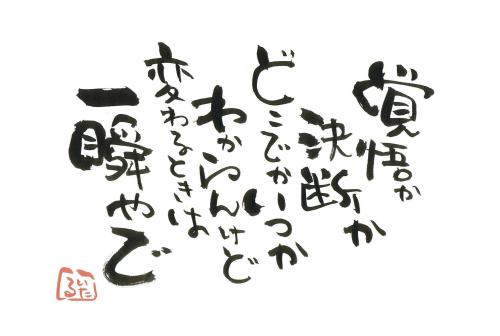 覚悟か
決断か
どこでかいつか
わからんけど
変わるときは
一瞬やで
いたる